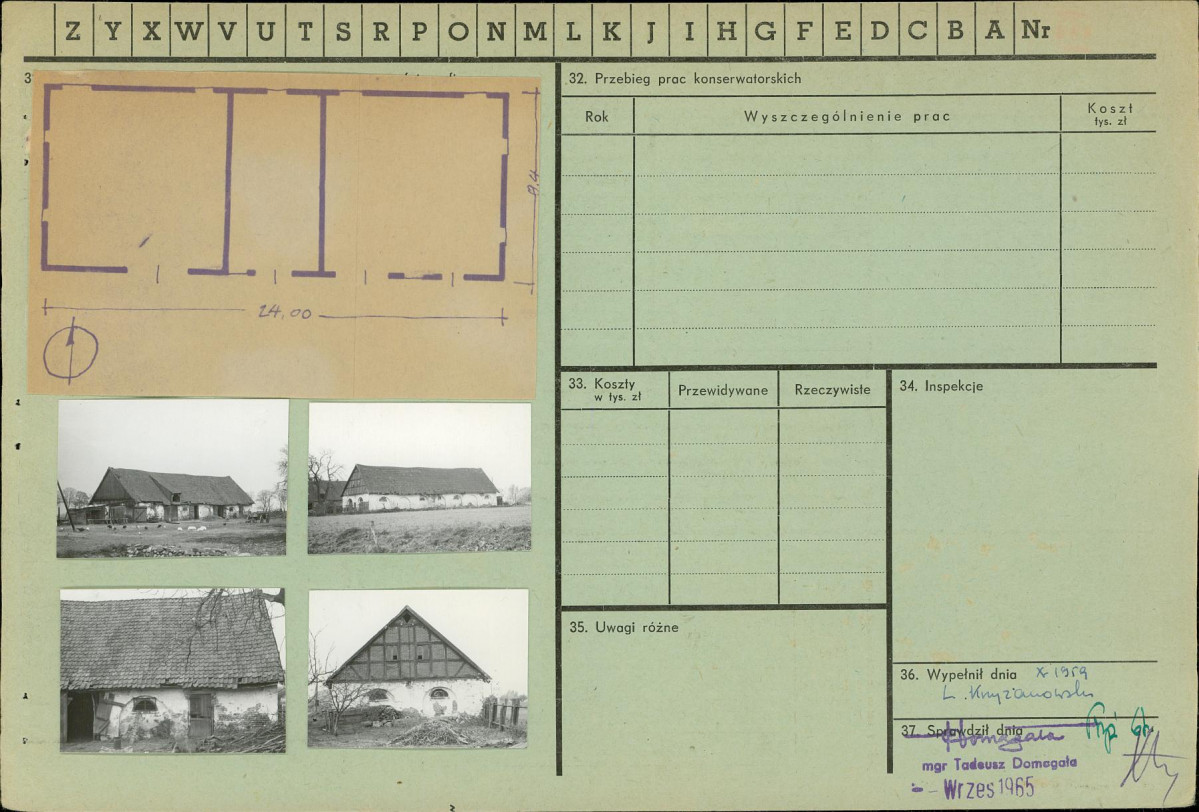 Z Y X W V U T S R P O N M L K J I H G F E D C B A Nr
8,4
24,00
32. Przebieg prac konserwatorskich
Rok
Wyszczególnienie prac
Koszt
tys. zł
33. Koszty
w tys. zł
Przewidywane
Rzeczywiste
34. Inspekcje
35. Uwagi różne
36. Wypełnił dnia X 1959
L. Krzyżanowski
37. Sprawdził dnia
Domagała
mgr Tadeusz Domagała
Wrzes 1965